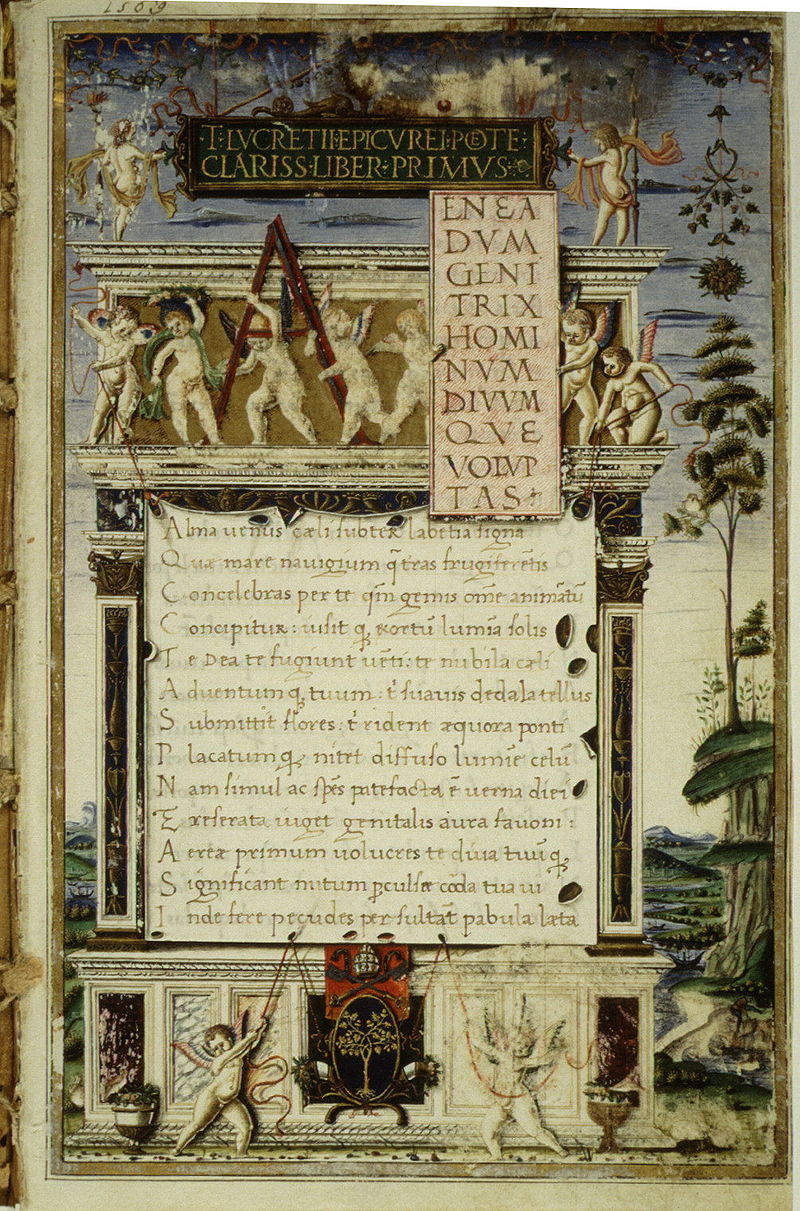 1509
T·LVCRETII·EPICVREI·POETE·
CLARISS·LIBER·PRIMVS·
A
ENEA
DVM
GENI
TRIX
HOMI
NVM
DIVVM
QVE
VOLVP
TAS
Alma uenus cæli subter labetia signa
Quæ mare nauigium q̄ tras frugiferētis
Concelebras per te qm̄ genus om̄e animātū
Concipitur: uisit q; exortū lumīa solis
Te Dea te fugiunt uēti: te nubila cæli
Aduentumq; tuum: t̄ suauis dedala tellus
Submittit flores: t̄ rident æquora ponti
Placatumq; nitet diffuso lumīe celū
Nam simul ac spēs patefacta ē uerna diei
Exreserata uiget genitalis aura fauoni:
Aereæ primum uolucres te diua tuūq;
Significant initum perculsæ corda tua ui
Inde fere pecudes per sultāt pabula læta